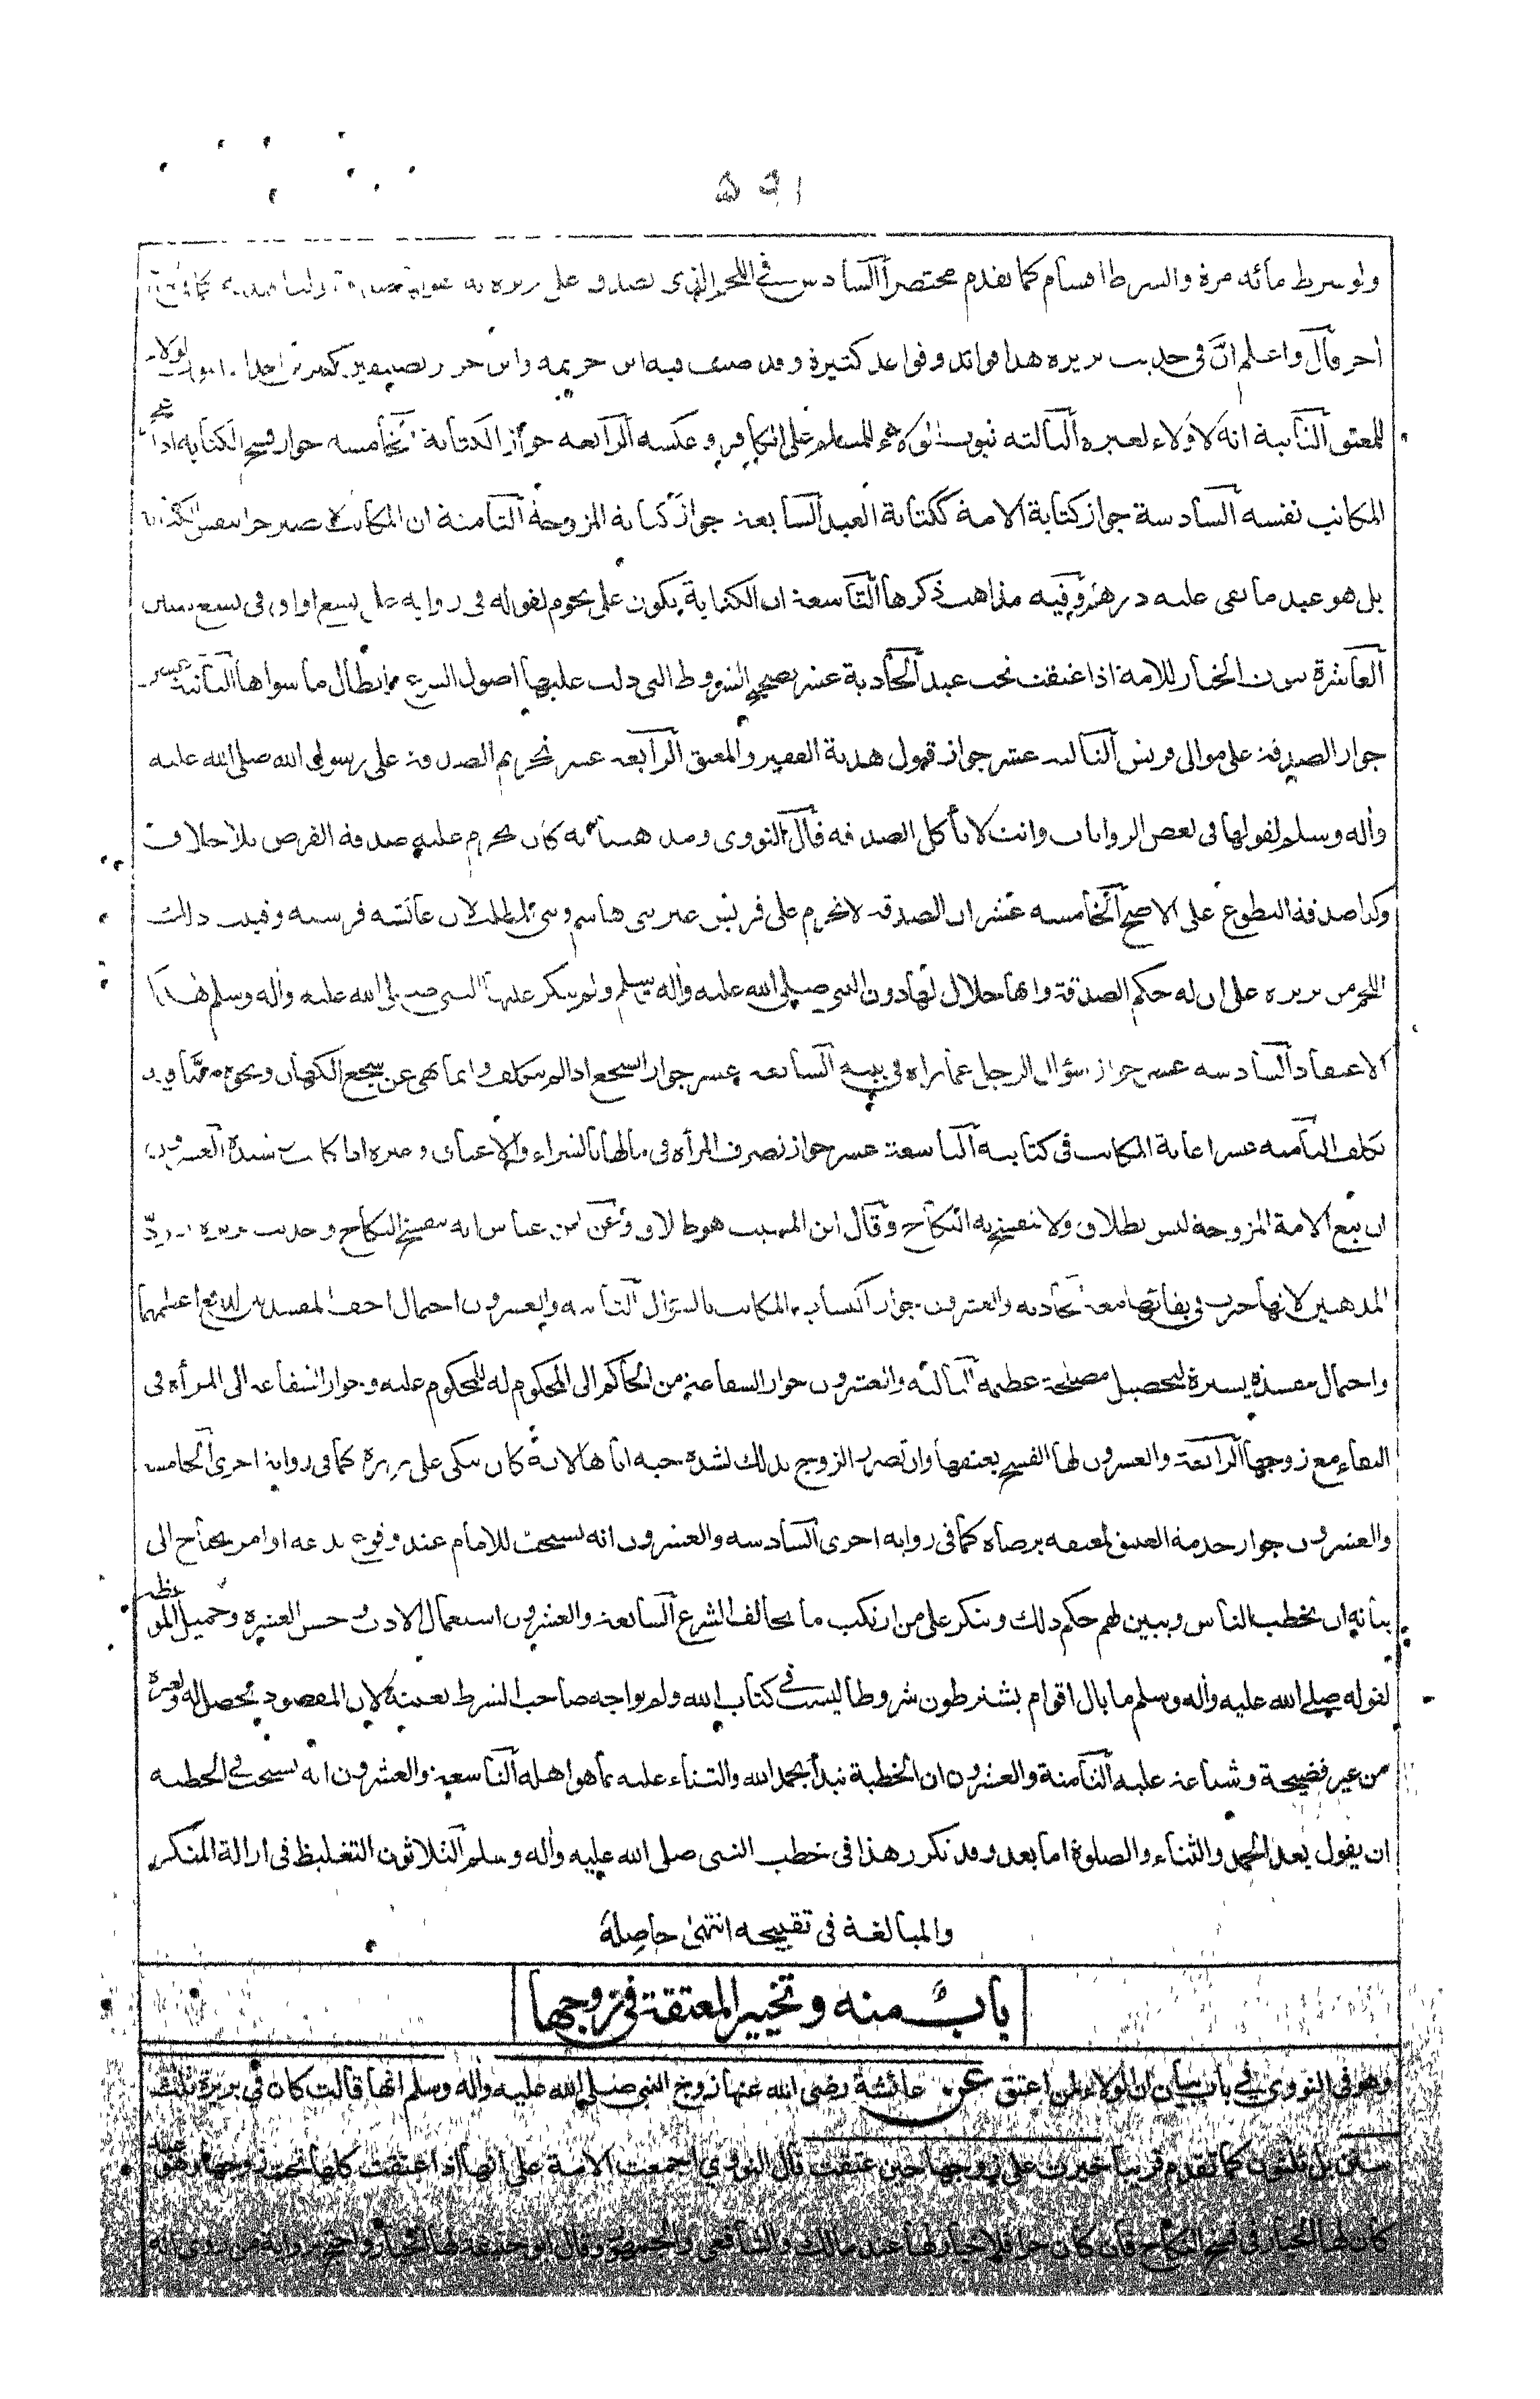 ٥٩١
ولو شرط مائة مرة والشرط اقسام كما تقدم مختصرا السادس في اللحم الذي تصدق على بريرة به
اخر قال واعلم ان في حديث بريرة هذا فوائد وقواعد كثيرة وقد صنف فيه ابن خزيمة وابن جرير تصنيفين كبيرين احداها الولاء
للمعتق الثانية انه لا ولاء لغيره الثالثة ثبوت الولاء للمسلم على الكافر وعكسه الرابعة جواز الكتابة الخامسة جواز فسخ الكتابة اذا عجز
المكاتب نفسه السادسة جواز كتابة الامة ككتابة العبد السابعة جواز كتابة المزوجة الثامنة ان المكاتب لا يصير حرا بنفس الكتابة
بل هو عبد ما بقي عليه درهم وفيه مذاهب ذكرها التاسعة ان الكتابة يكون على نجوم لقوله في رواية على تسع اواق في تسع سنين
العاشرة ثبوت الخيار للامة اذا عتقت تحت عبد الحادية عشر تصحيح الشروط التي دلت عليها اصول الشرع وابطال ما سواها الثانية عشر
جواز الصدقة على موالي قريش الثالثة عشر جواز قبول هدية الفقير والمعتق الرابعة عشر تحريم الصدقة على رسول الله صلى الله عليه
وآله وسلم لقولها في بعض الروايات وانت لا تأكل الصدقة قال النووي ومذهبنا انه كان يحرم عليه صدقة الفرض بلا خلاف
وكذا صدقة التطوع على الاصح الخامسة عشر ان الصدقة لا تحرم على قريش غير بني هاشم وبني المطلب لان عائشة قرشية وقبلت ذلك
اللحم من بريرة على ان له حكم الصدقة وانها حلال لها دون النبي صلى الله عليه وآله وسلم ولم ينكر عليها النبي صلى الله عليه وآله وسلم هذا
الاعتقاد السادسة عشر جواز سؤال الرجل عما يراه في بيته السابعة عشر جواز السجع اذا لم يتكلف وانما نهى عن سجع الكهان ونحوه مما فيه
تكلف الثامنة عشر اعانة المكاتب في كتابته التاسعة عشر جواز تصرف المرأة في مالها بالشراء والاعتاق وغيره اذا كانت رشيدة العشرون
ان بيع الامة المزوجة ليس بطلاق ولا ينفسخ به النكاح وقال ابن المسيب هو طلاق وعن ابن عباس انه ينفسخ النكاح وحديث بريرة يرد
المذهبين لانها خيرت في بقائها معه الحادية والعشرون جواز اكتساب المكاتب بالسؤال الثانية والعشرون احتمال اخف المفسدتين لدفع اعظمهما
واحتمال مفسدة يسيرة لتحصيل مصلحة عظيمة الثالثة والعشرون جواز الشفاعة من الحاكم الى المحكوم له للمحكوم عليه وجواز الشفاعة الى المرأة في
البقاء مع زوجها الرابعة والعشرون لها الفسخ بعتقها وان تضرر الزوج بذلك لشدة حبه اياها لانه كان يبكي على بريرة كما في رواية اخرى الخامسة
والعشرون جواز خدمة العتيق لمعتقه برضاه كما في رواية اخرى السادسة والعشرون انه يستحب للامام عند وقوع بدعة او امر يحتاج الى
بيانه ان يخطب الناس ويبين لهم حكم ذلك وينكر على من ارتكب ما يخالف الشرع السابعة والعشرون استعمال الادب وحسن العشرة وجميل الموعظة
لقوله صلى الله عليه وآله وسلم ما بال اقوام يشترطون شروطا ليست في كتاب الله ولم يواجه صاحب الشرط بعينه لان المقصود يحصل له ولغيره
من غير فضيحة وشناعة عليه الثامنة والعشرون ان الخطبة تبدأ بحمد الله والثناء عليه بما هو اهله التاسعة والعشرون انه يستحب في الخطبة
ان يقول بعد الحمد والثناء والصلوة اما بعد وقد تكرر هذا في خطب النبي صلى الله عليه وآله وسلم الثلاثون التغليظ في ازالة المنكر
والمبالغة في تقبيحه انتهى حاصله
باب منه وتخيير المعتقة في زوجها
وهو في النووي في باب بيان ان الولاء لمن اعتق عن عائشة رضي الله عنها زوج النبي صلى الله عليه وآله وسلم انها قالت كان في بريرة ثلث
سنن بل ثلثون كما تقدم قريبا خيرت على زوجها حين عتقت قال النووي اجمعت الامة على انها اذا اعتقت كلها تحت زوجها وهو عبد
كان لها الخيار في فسخ النكاح فان كان حرا فلا خيار لها عند مالك والشافعي والجمهور وقال ابو حنيفة لها الخيار واحتج برواية من روى انه